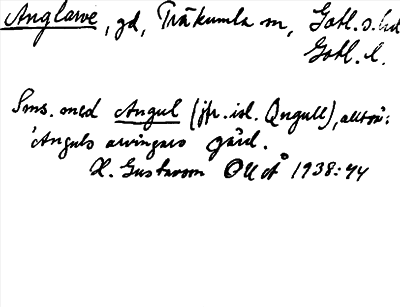 Anglarve, gd, Träkumla sn, Gotl. s. hd
Gotl. l.
Sms. med Angul (jfr. isl. Qngull), alltså:
'Anguls arvingars gård.
H. Gustavson OUÅ 1938:44